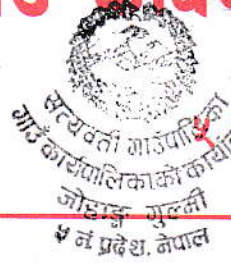 सत्यवती गाउँपालिका
गाउँ कार्यपालिकाको
जोहाङ्ग गुल्मी
५ नं प्रदेश, नेपाल